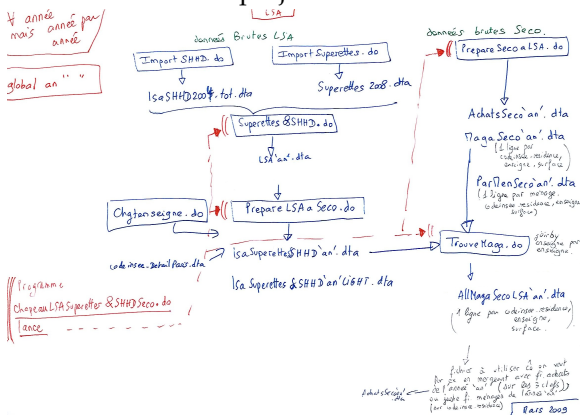 ∀ année
mais année par
année
global an " "
LSA
données Brutes LSA
Import SHHD.do
Import Superettes.do
Superettes 2008.dta
Superettes &SHHD.do
LSA'an'.dta
Chgtenseigne.do
Prepare LSA a Seco.do
codeinsee.DetailParis.dta
lsaSuperettes&SHHD'an'.dta
lsa Superettes &SHHD'an'LIGHT.dta
Programme
ChapeauLSASuperettes &SHHDSeco.do
lance
données brutes Seco.
Prepare Seco a LSA.do
AchatsSeco'an'.dta
MagaSeco'an'.dta
(1 ligne par
codeinsee.residence,
enseigne, surface)
ParMenSeco'an'.dta
(1 ligne par menage,
codeinsee residence, enseigne
surface)
TrouveMaga.do
enseigne par
enseigne.
AllMagaSecoLSA'an'.dta
(1 ligne par codeinsee.residence,
enseigne,
surface.
fichier à utiliser où on veut
en mergeant avec fi. achats
de l'année 'an' (sur les 3 clefs),
ou juste fi menages de l'année 'an'
(sur codeinsee residence)
Mars 2009